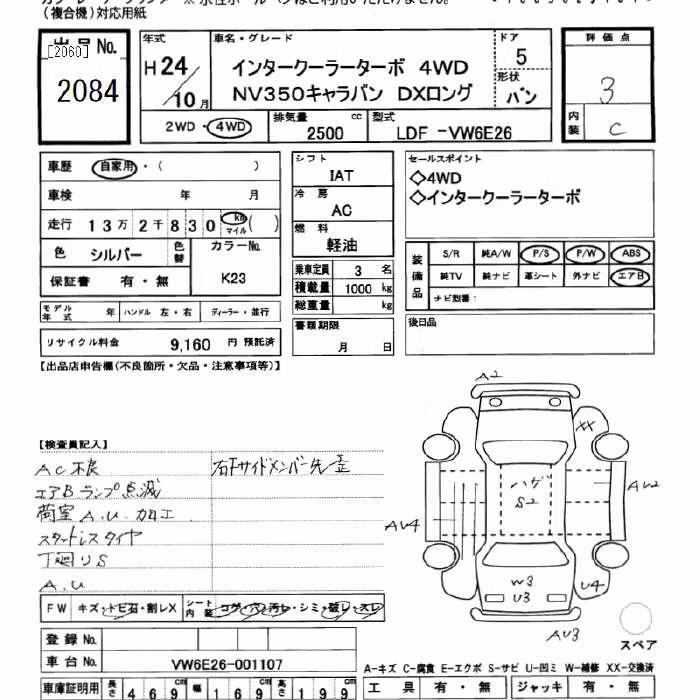 (複合機)対応用紙
出品No.
[2060]
2084
年式
H24/10月
車名・グレード
インタークーラーターボ 4WD
NV350キャラバン DXロング
ドア
5
形状
バン
評価点
3
内装
C
2WD・4WD
排気量 2500 cc
型式 LDF -VW6E26
車歴 自家用・( )
車検 年 月
走行 13万2千830 km マイル ( )
色 シルバー 色替
カラーNo. K23
保証書 有・無
シフト
IAT
冷房
AC
燃料
軽油
乗車定員 3 名
積載量 1000 kg
総重量 kg
書類期限
月 日
セールスポイント
◇4WD
◇インタークーラーターボ
装備品
S/R 純A/W P/S P/W ABS
純TV 純ナビ 革シート 外ナビ エアB
ナビ型番:
後日品
モデル年式 年 ハンドル 左・右 ディーラー・並行
リサイクル料金 9,160 円 預託済
【出品店申告欄(不良箇所・欠品・注意事項等)】
【検査員記入】
AC不良
右Fサイドメンバー先歪
エアBランプ点滅
荷室A.U.加工
スタートレスタイヤ
下廻りS
A.U
A2
XX
ハゲ
S2
AU2
AU4
W3
U3
U4
AU3
スペア
FW キズ・トビ石・割レX シート内装 コゲ・穴・汚レ・シミ・破レ・スレ
登録No.
車台No. VW6E26-001107
A-キズ C-腐食 E-エクボ S-サビ U-凹ミ W-補修 XX-交換済
車庫証明用 長さ 469 cm 幅 169 cm 高さ 199 cm
工具 有・無 ジャッキ 有・無